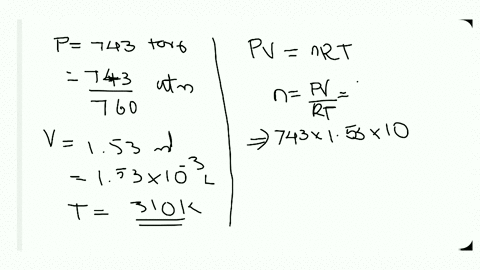 P = 743 torr
= 743/760 atm
V = 1.53 ml
= 1.53 × 10⁻³ L
T = 310 K
PV = nRT
n = PV/RT =
⇒ 743 × 1.56 × 10